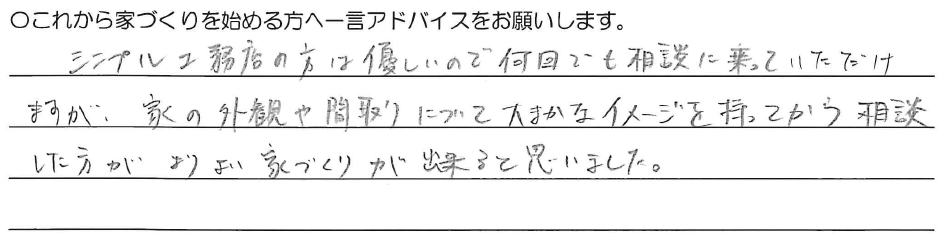 ○これから家づくりを始める方へ一言アドバイスをお願いします。
シンプル工務店の方は優しいので何回でも相談に乗っていただけ
ますが、家の外観や間取りについて大まかなイメージを持ってから相談
した方がよりよい家づくりが出来ると思いました。